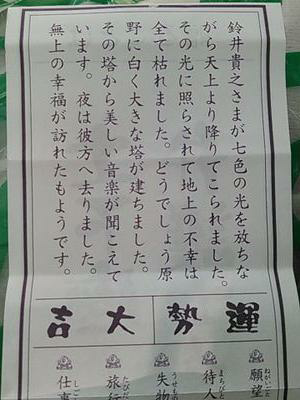 鈴井貴之さまが七色の光を放ちな
がら天上より降りてこられました。
その光に照らされて地上の不幸は
全て枯れました。どうでしょう原
野に白く大きな塔が建ちました。
その塔から美しい音楽が聞こえて
います。夜は彼方へ去りました。
無上の幸福が訪れたもようです。
運勢
大吉
願望
ねがいごと
待人
まちびと
失物
うせもの
旅行
たびだち
仕事
しごと